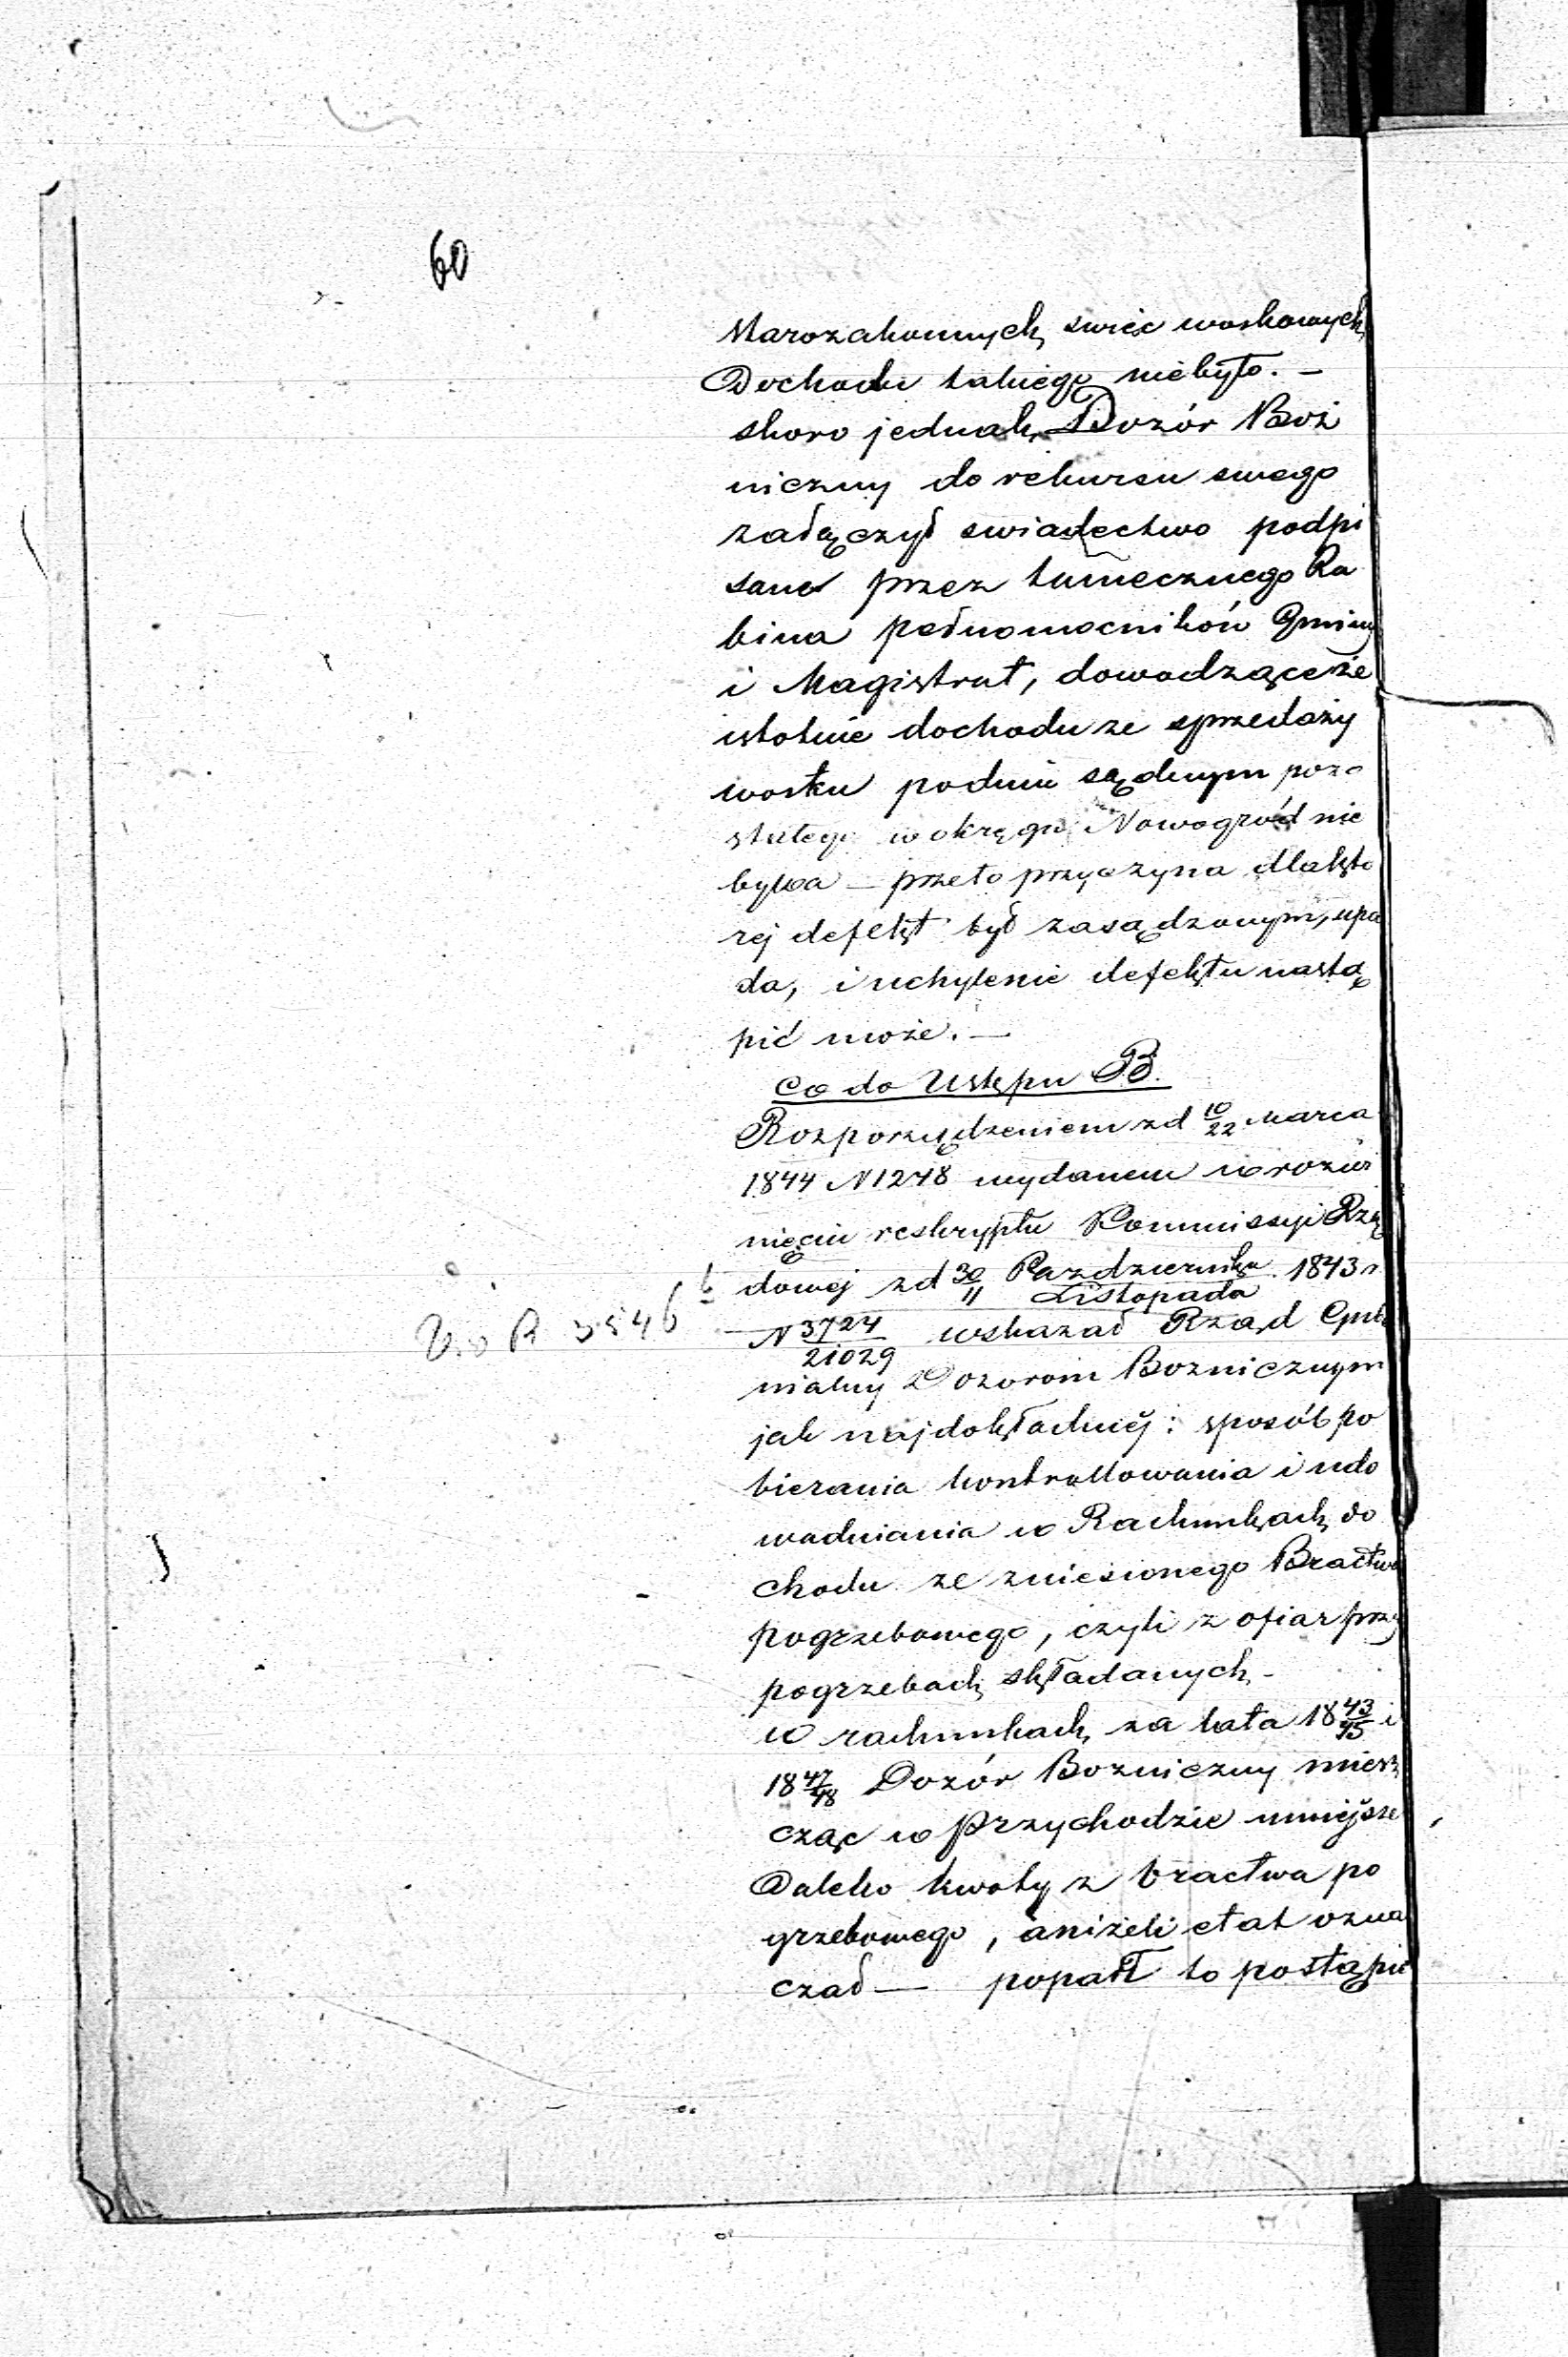 60
Starozakonnych, swiec woskowych
Dochodu takiego niebyło. —
skoro jednak, Dozór Boż
niczny do rekursu swego
załączył swiadectwo podpi
sane przez tamecznego Ra
bina pełnomocników Gminy
i Magistrat, dowodzące że
istotnie dochodu ze sprzedaży
wosku podniu sądnym pozo
stałego w okręgu Nowogród nie
bywa — przeto przyczyna dla któ
rej defekt był zasądzonym, upa
da, i uchylenie defektu nastą
pić może. —
Co do Ustępu B.
Rozporządzeniem z d 10/22 Marca
1844 N 1248 wydanem w rozwi
nięciu reskryptu Kommissyi Rzą
dowej z d 30/11 Pazdziernika/Listopada 1843 r
N 3724/21029 wskazał Rząd Gub
nialny Dozorom Bozniczym
jak najdokładniej: sposób po
bierania kontrollowania i udo
wadniania w Rachunkach do
chodu ze zniesionego Bractwa
pogrzebowego, czyli z ofiar przy
pogrzebach składanych —
W rachunkach za lata 1843/45 i
1847/48 Dozór Bozniczny miesz
cząc w Przychodzie mniejsze
Daleko kwoty z bractwa po
grzebowego, aniżeli etat ozna
czał — poparł to postąpie